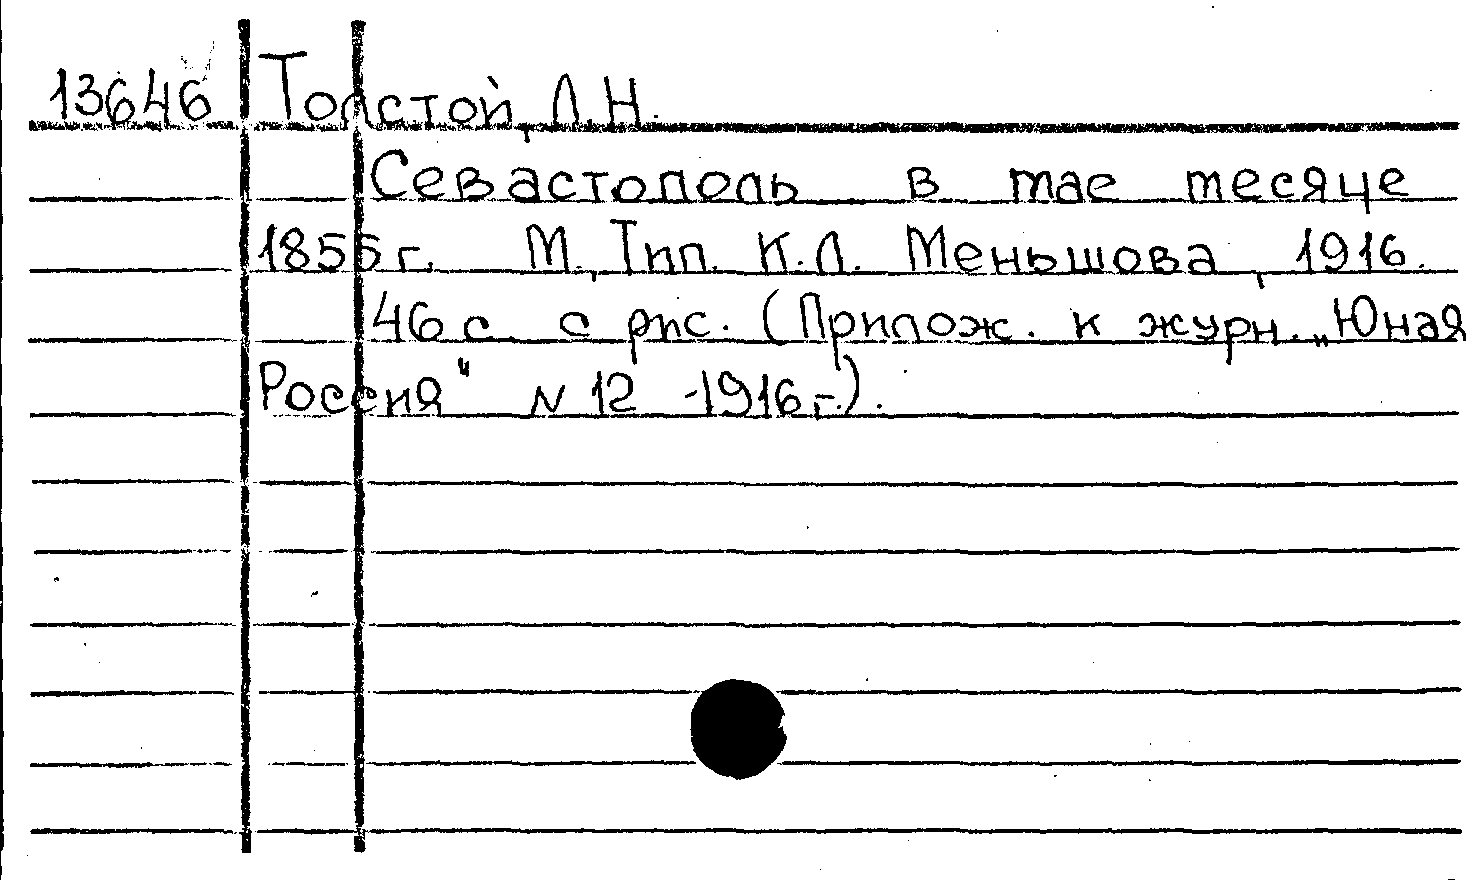 13646 Толстой, Л.Н.
Севастополь в мае месяце
1855 г. М., Тип. К.Л. Меньшова, 1916.
46 с. с рис. (Прилож. к журн. „Юная
Россия" N 12 -1916 г.).